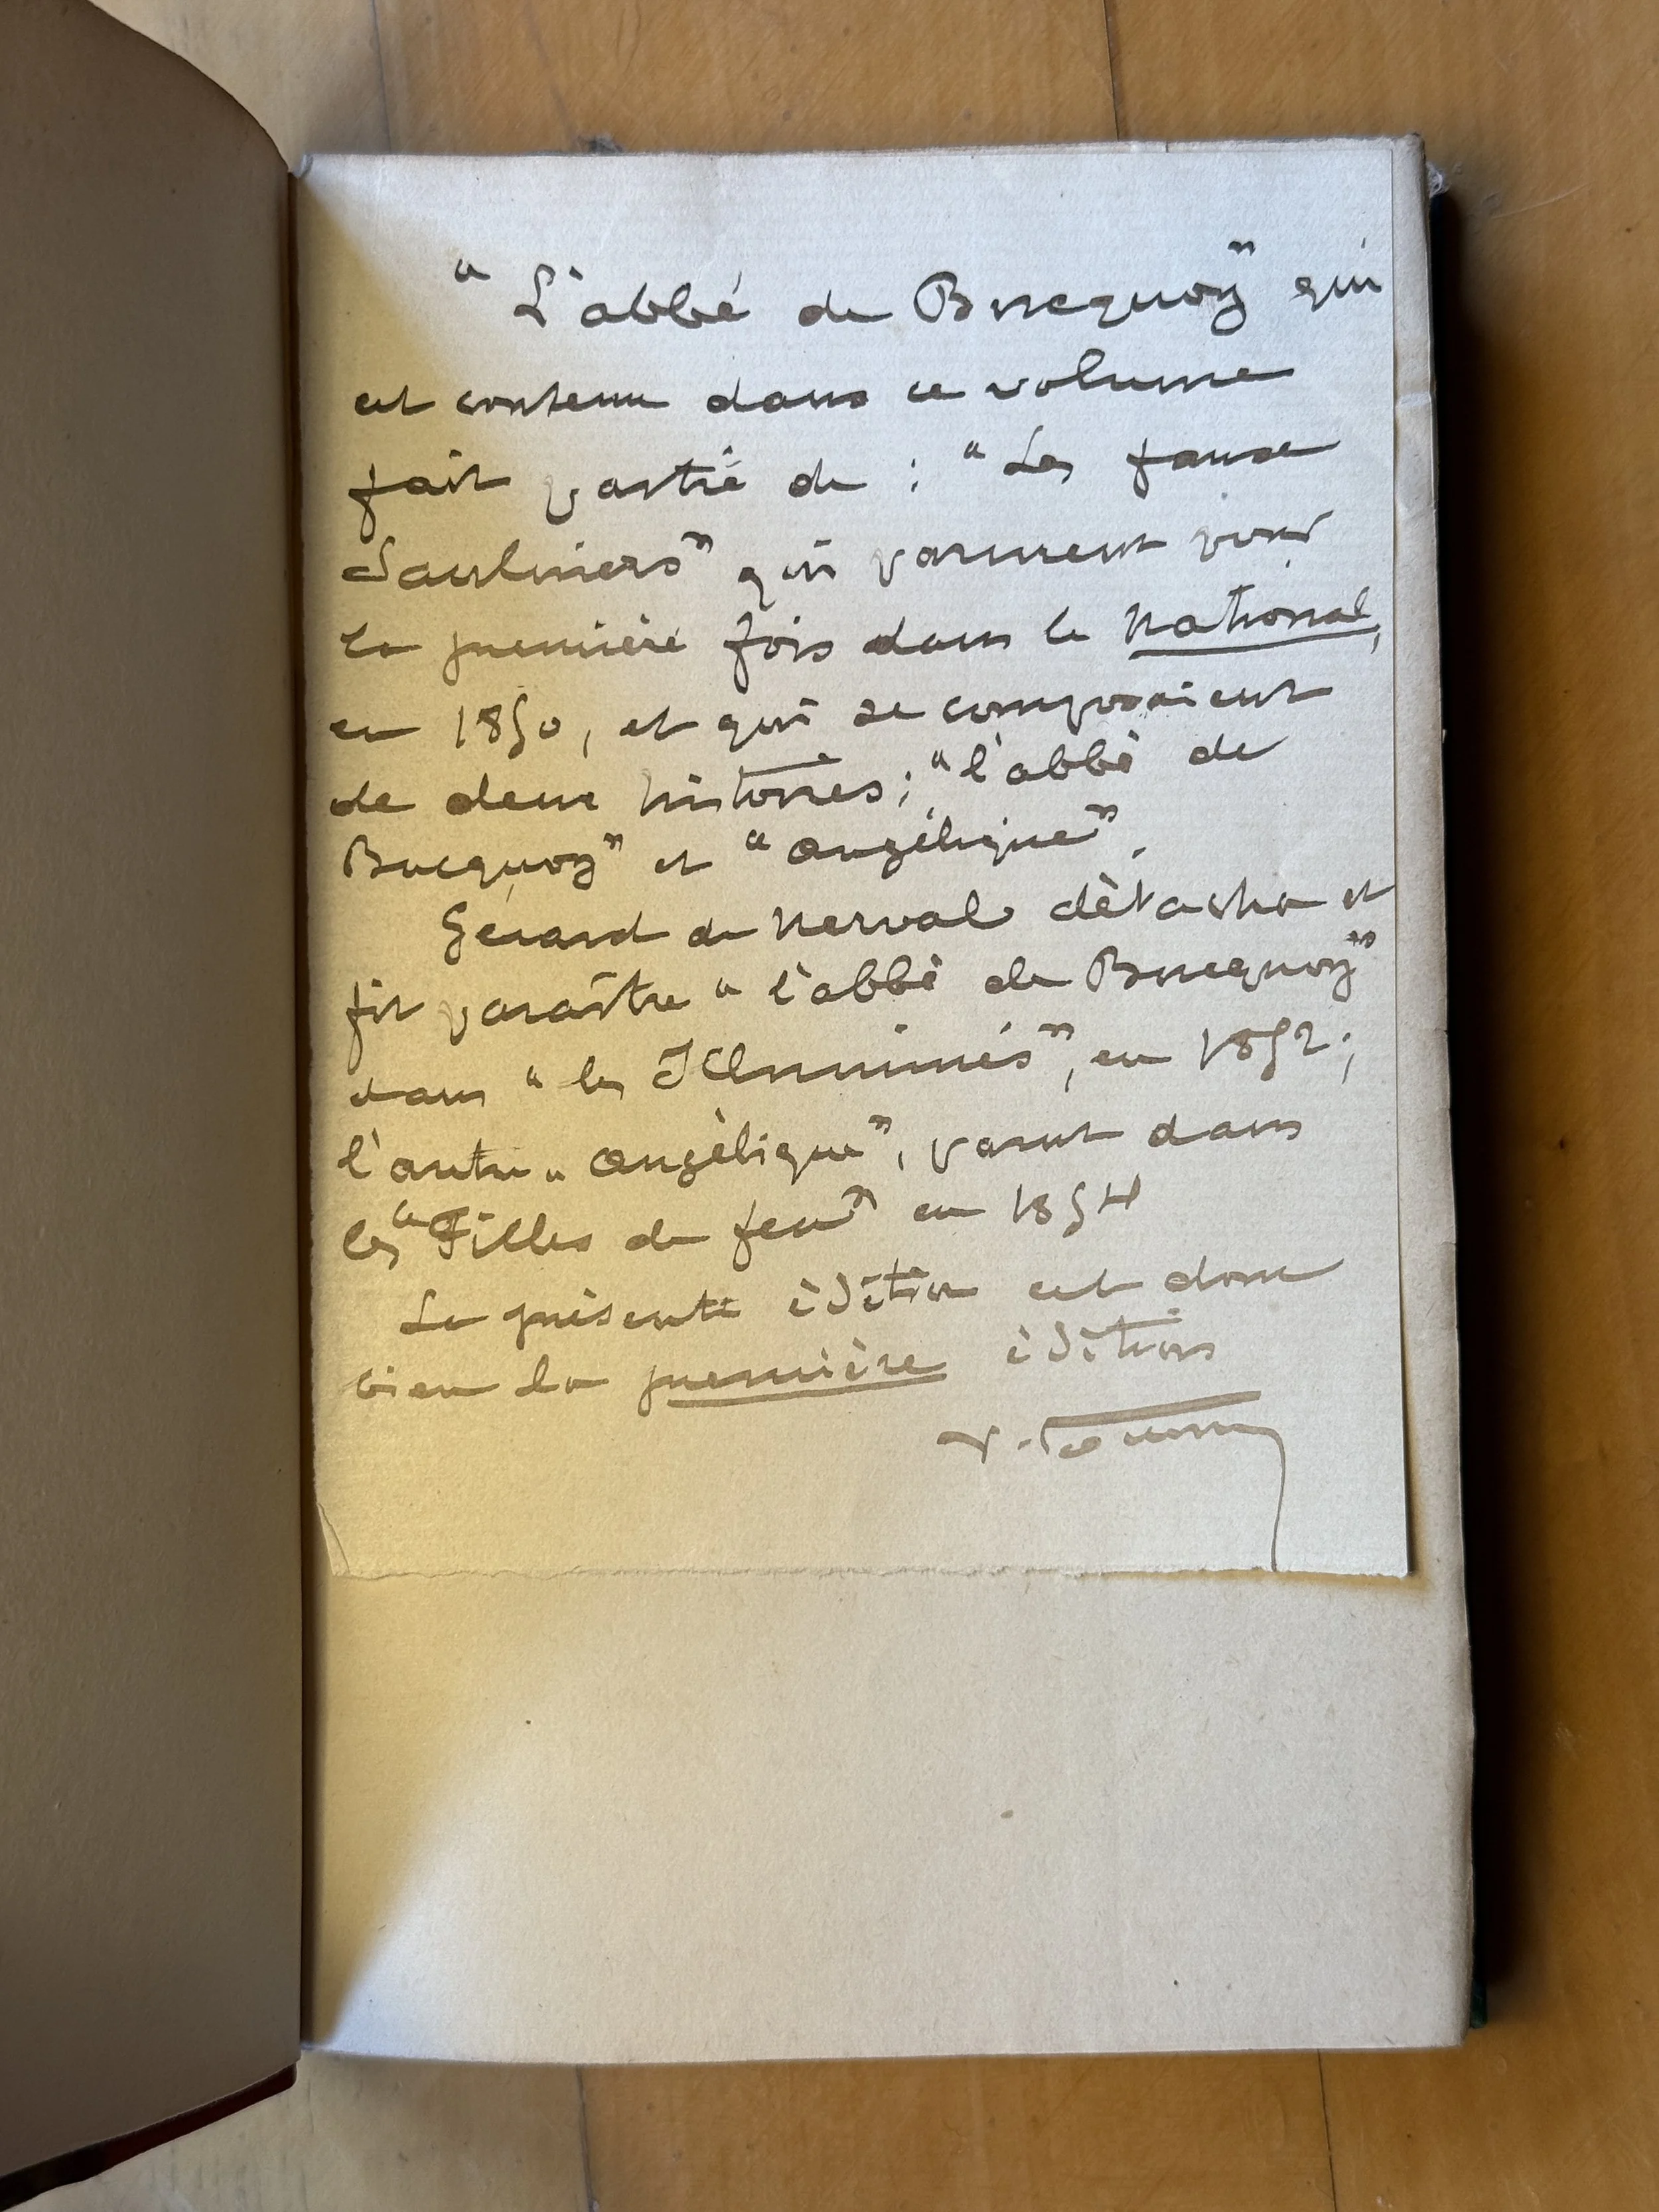 "L'abbé de Bucquoy" qui
est contenu dans ce volume
fait partie de : "Les faux
Saulniers" qui parurent pour
la première fois dans le National,
en 1850, et qui se composaient
de deux histoires ; "l'abbé de
Bucquoy" et "Angélique".
Gérard de Nerval détacha et
fit paraître "l'abbé de Bucquoy"
dans "les Illuminés", en 1852 ;
l'autre "Angélique", parut dans
les "Filles du feu" en 1854
La présente édition est donc
bien la première édition